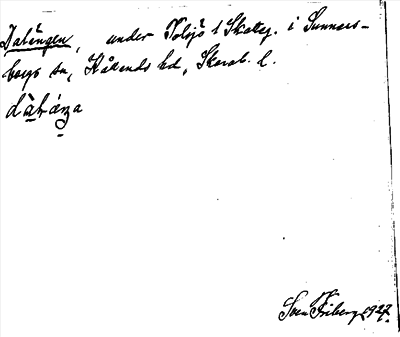 Dalängen, under Tolsjö 1 Skatteg. i Sunners-
bergs sn, Kållands hd, Skarab. l.
dàláŋa
Sven Friberg 1927.